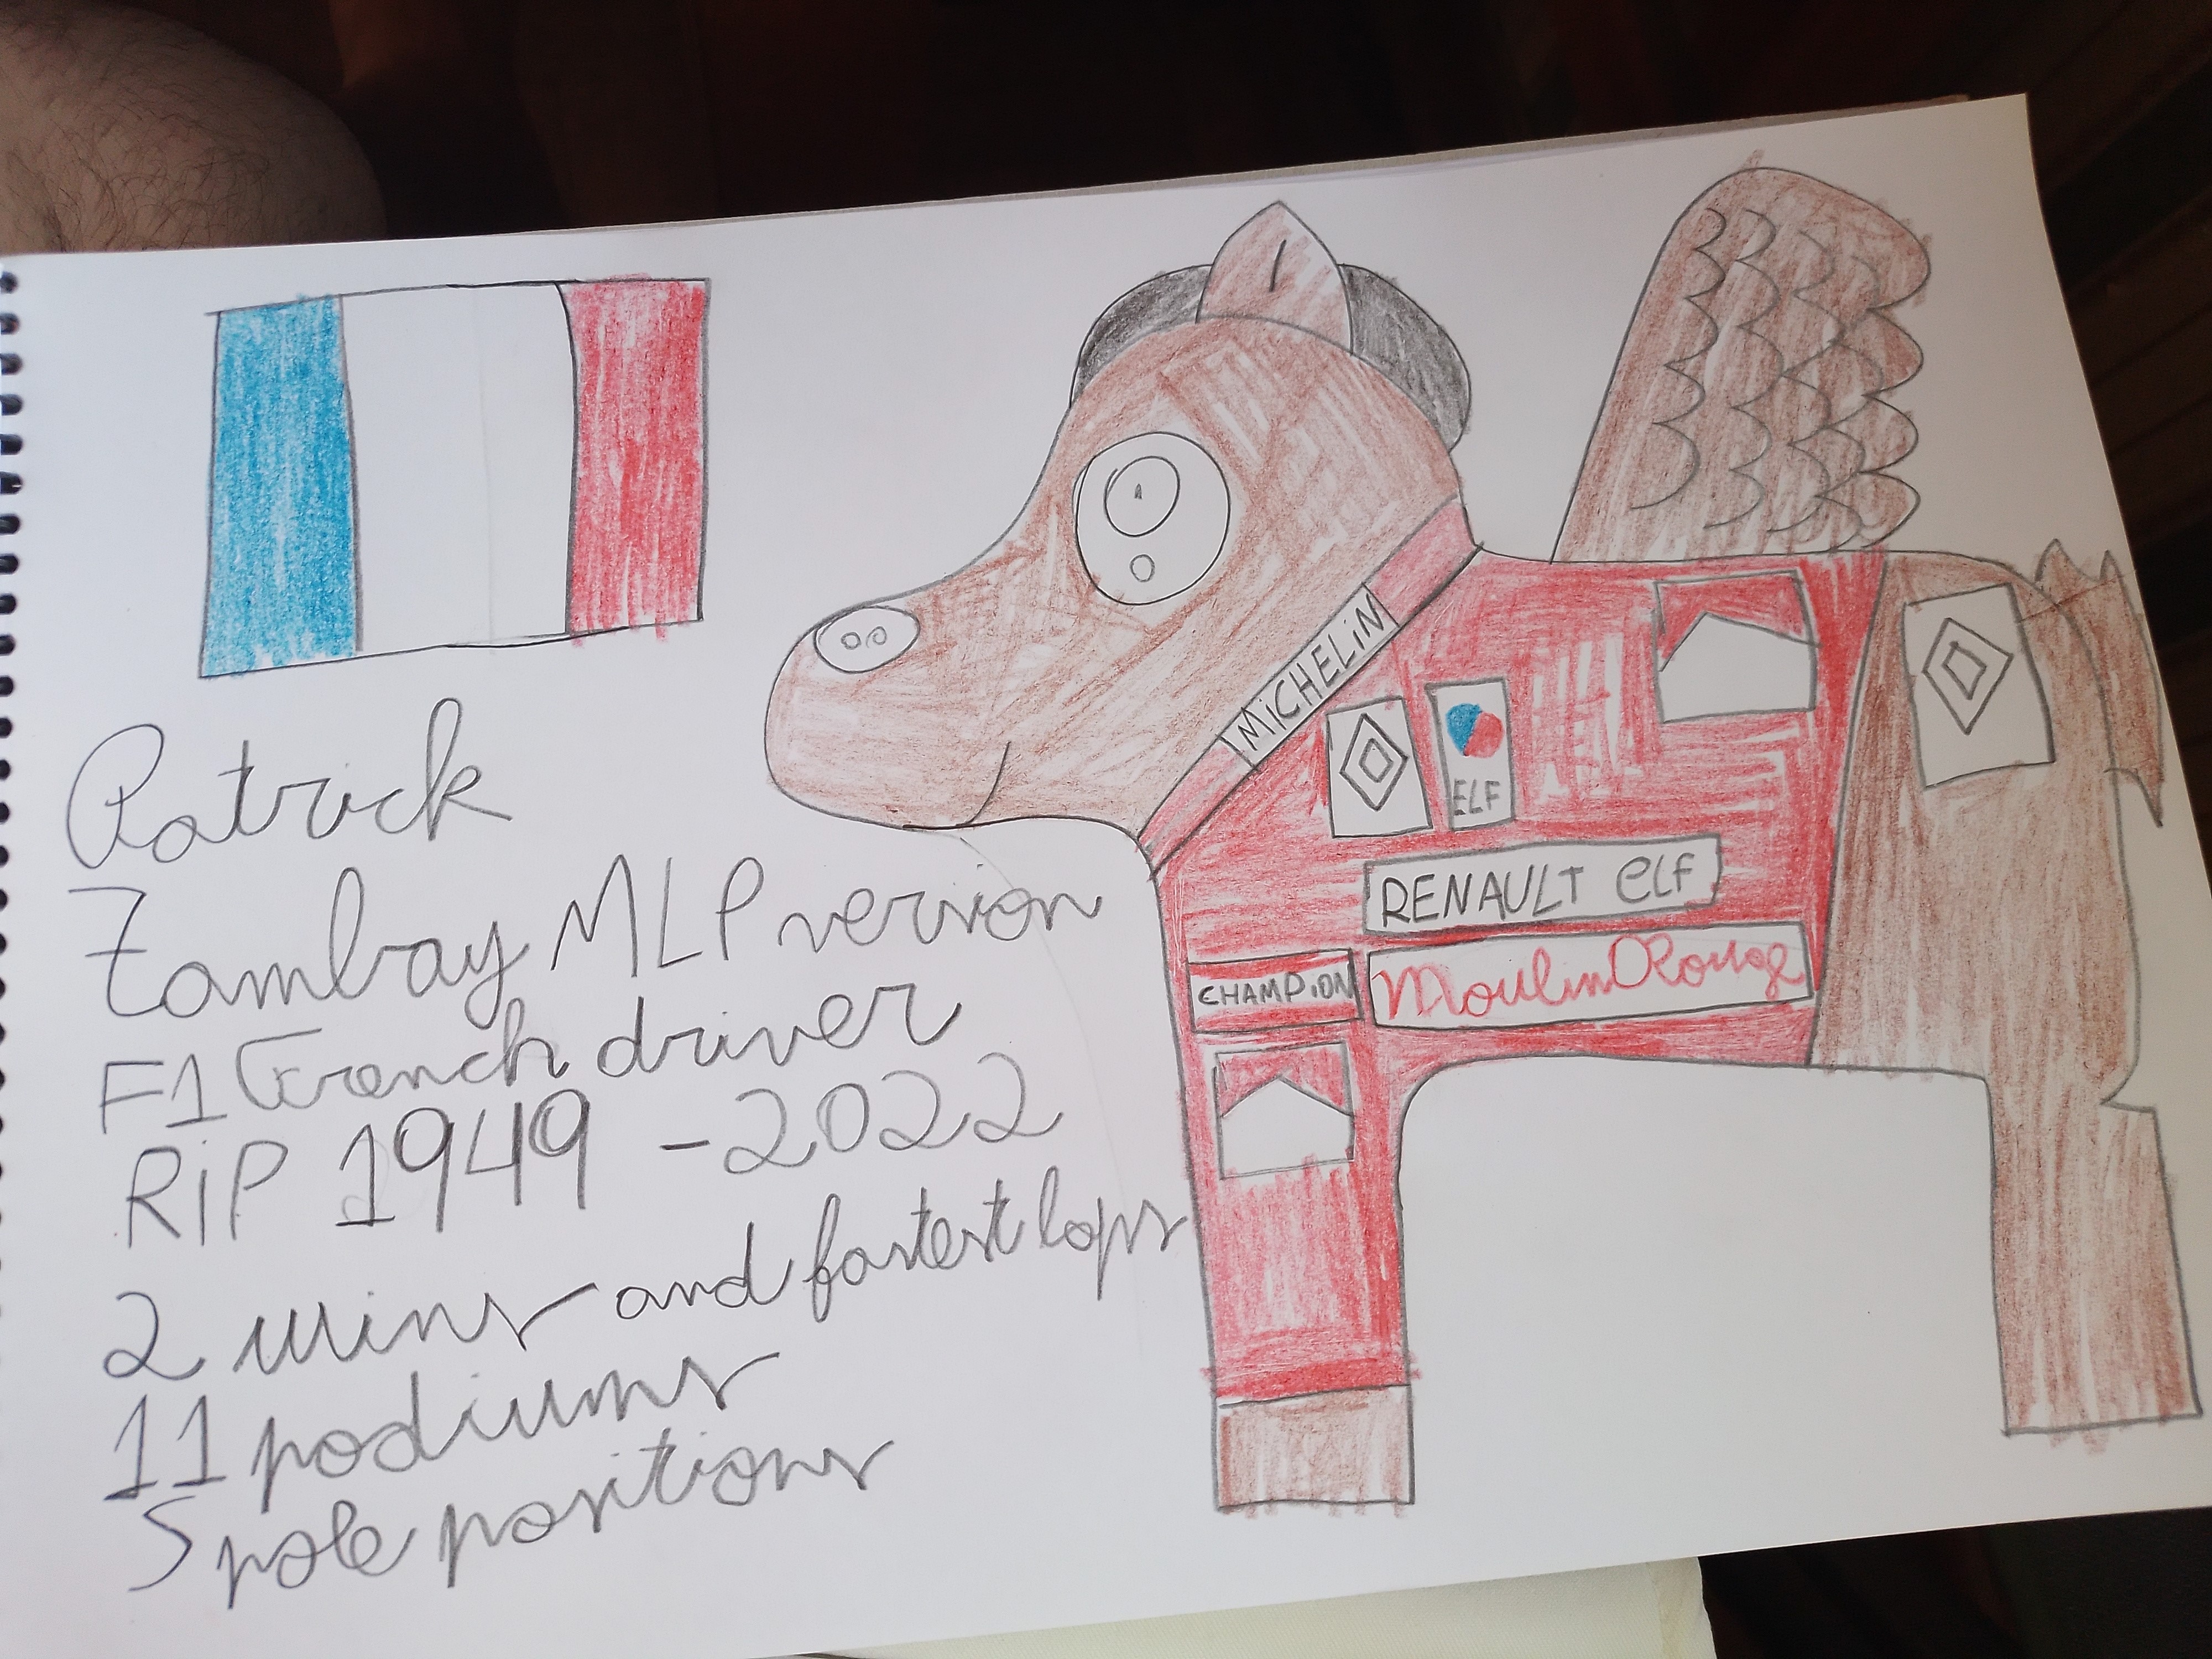 Patrick
Tambay MLP version
F1 French driver
RiP 1949 - 2022
2 wins and fastest laps
11 podiums
5 pole positions
MiCHELiN
ELF
RENAULT elf
CHAMPiON
Moulin Rouge